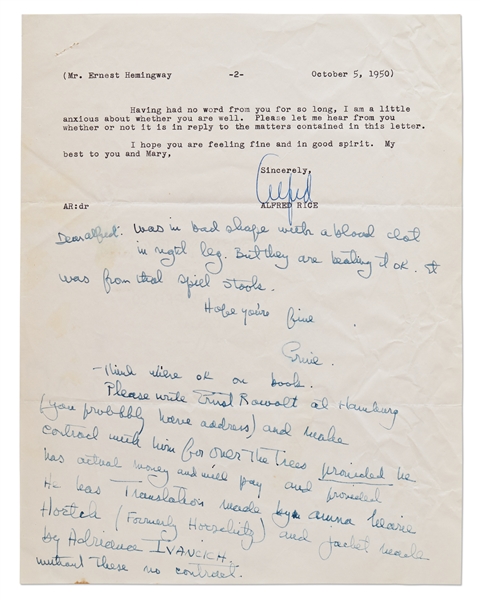 (Mr. Ernest Hemingway -2- October 5, 1950)
Having had no word from you for so long, I am a little
anxious about whether you are well. Please let me hear from you
whether or not it is in reply to the matters contained in this letter.
I hope you are feeling fine and in good spirit. My
best to you and Mary,
Sincerely,
Alfred
ALFRED RICE
AR:dr
Dear Alfred: Was in bad shape with a blood clot
in right leg. But they are beating it ok. It
was from that spiel
Hope you're fine
Ernie.
- Think we're ok on book.
Please write Ernst Rowolt at Hamburg
(you probably have address) and make
contract with him for over The Trees provided he
has actual money and will pay and provided
He has Translation made by anna Marie
(Formerly Horschitz) and jacket made
by Adriana IVANCICH.
without these no contract.